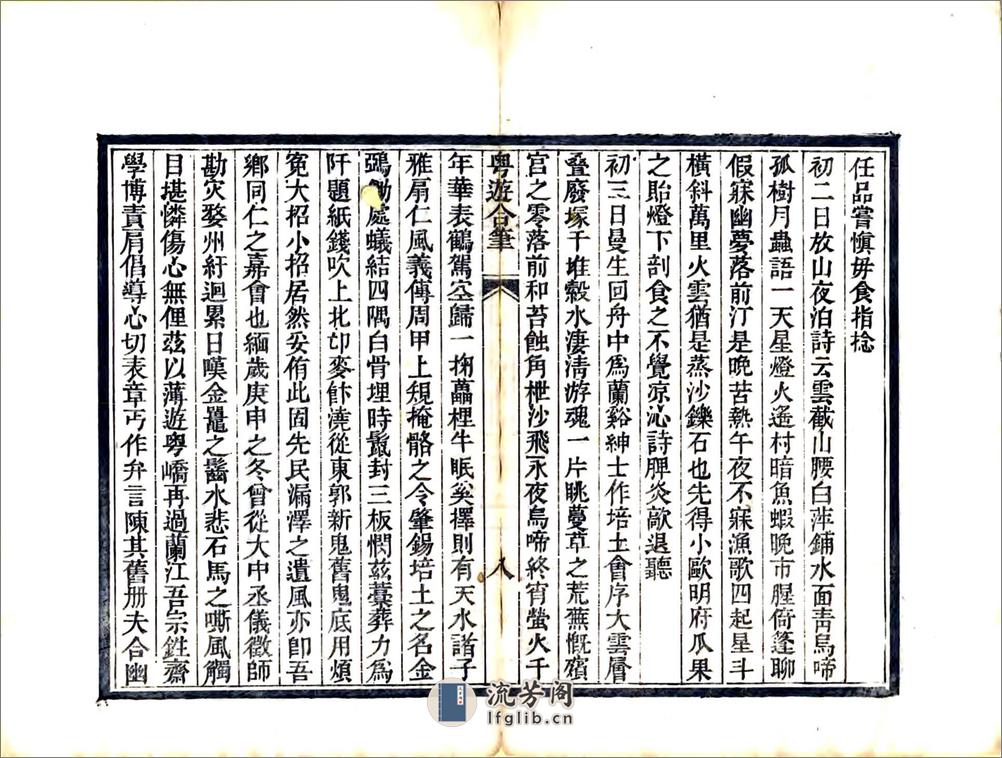 任品嘗慎毋食指捻
初二日放山夜泊詩云雲截山腰白萍鋪水面青鳥啼
孤樹月蟲語一天星燈火遙村暗魚蝦晚市腥倚蓬聊
假寐幽夢落前汀是晚苦熱午夜不寐漁歌四起星斗
橫斜萬里火雲猶是蒸沙鑠石也先得小歐明府瓜果
之貽燈下剖食之不覺凉沁詩脾炎歊退聽
初三日曼生回舟中爲蘭谿紳士作培土會序大雲層
叠廢塚千堆穀水淒淸游魂一片眺蔓草之荒蕪慨殯
宮之零落前和苔蝕角枻沙飛永夜烏啼終宵螢火千
粵遊合筆
八
年華表鶴駕空歸一掬蘲梩牛眠奚擇則有天水諸子
雅肩仁風義傳周甲上規掩骼之令肇錫培土之名金
鵶鋤處蟻結四隅白骨埋時鬣封三板憫茲藁葬力爲
阡題紙錢吹上北邙麥飰澆從東郭新鬼舊鬼底用煩
寃大招小招居然妥侑此固先民漏澤之遺風亦卽吾
鄉同仁之嘉會也緬歲庚申之冬曾從大中丞儀徵師
勘灾婺州紆迴累日嘆金鼉之齧水悲石馬之嘶風觸
目堪憐傷心無俚茲以薄遊粵嶠再過蘭江吾宗鉎齋
學博責肩倡導心切表章丐作弁言陳其舊册夫合幽
流芳阁
lfglib.cn